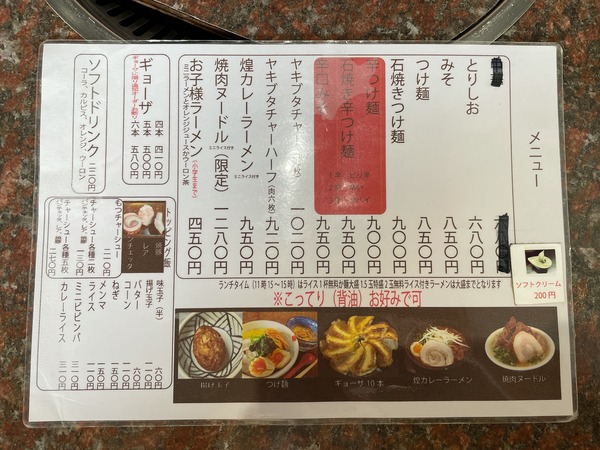 メニュー
とりしお 六八〇円
みそ 八五〇円
つけ麺 八五〇円
石焼きつけ麺 九〇〇円
辛つけ麺 九〇〇円
石焼き辛つけ麺 九五〇円
辛口みそ
ヤキブタチャーハン 一〇二〇円
ヤキブタチャーハーフ（肉六枚） 九二〇円
煌カレーラーメン ミニライス付き 九五〇円
焼肉ヌードル（限定） ミニライス付き 一二八〇円
お子様ラーメン（小学生まで） 四五〇円
ミニラーメンとオレンジジュースかウーロン茶
ギョーザ 四本 四一〇円
五本 五〇〇円
六本 五八〇円
ソフトドリンク 二二〇円
コーラ、カルピス、オレンジ、ウーロン
トッピング・飯
焼豚
レア
ンチェッタ
もつチャーシュー 二一〇円
チャーシュー各種二枚 一三〇円
チャーシュー各種五枚 二七〇円
味玉子（半） 六〇円
揚げ玉子 一六〇円
バター 六〇円
コーン 一一〇円
ねぎ 一五〇円
メンマ 一五〇円
ライス 一一〇円
ミニビビンバ 三一〇円
カレーライス 三一〇円
ソフトクリーム
200円
ランチタイム（11時15～15時）はライス1杯無料か麺大盛1.5玉特盛2玉無料ライス付きラーメンは大盛までとなります
※こってり（背油）お好みで可
揚げ玉子
つけ麺
ギョーザ10本
煌カレーラーメン
焼肉ヌードル